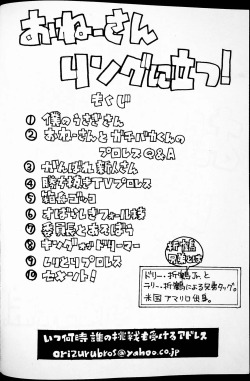 おねーさん
リングに立つ!
もくじ
① 僕のうさぎさん
② おねーさんとガチバカくんの
プロレスQ&A
③ がんばれ新人さん
④ 勝手焼きTVプロレス
⑤ ゴッコ
⑥ すばらしきフォール技
⑦ 委員長とあそぼう
⑧ キングオブドリーマー
⑨ しりとりプロレス
⑩ セメント!
折鶴
兄弟とは
ドリー・折鶴Jr.と
テリー・折鶴による兄弟タッグ。
米国アマリロ出身。
いつ何時誰の挑戦も受けるアドレス
orizurubros@yahoo.co.jp